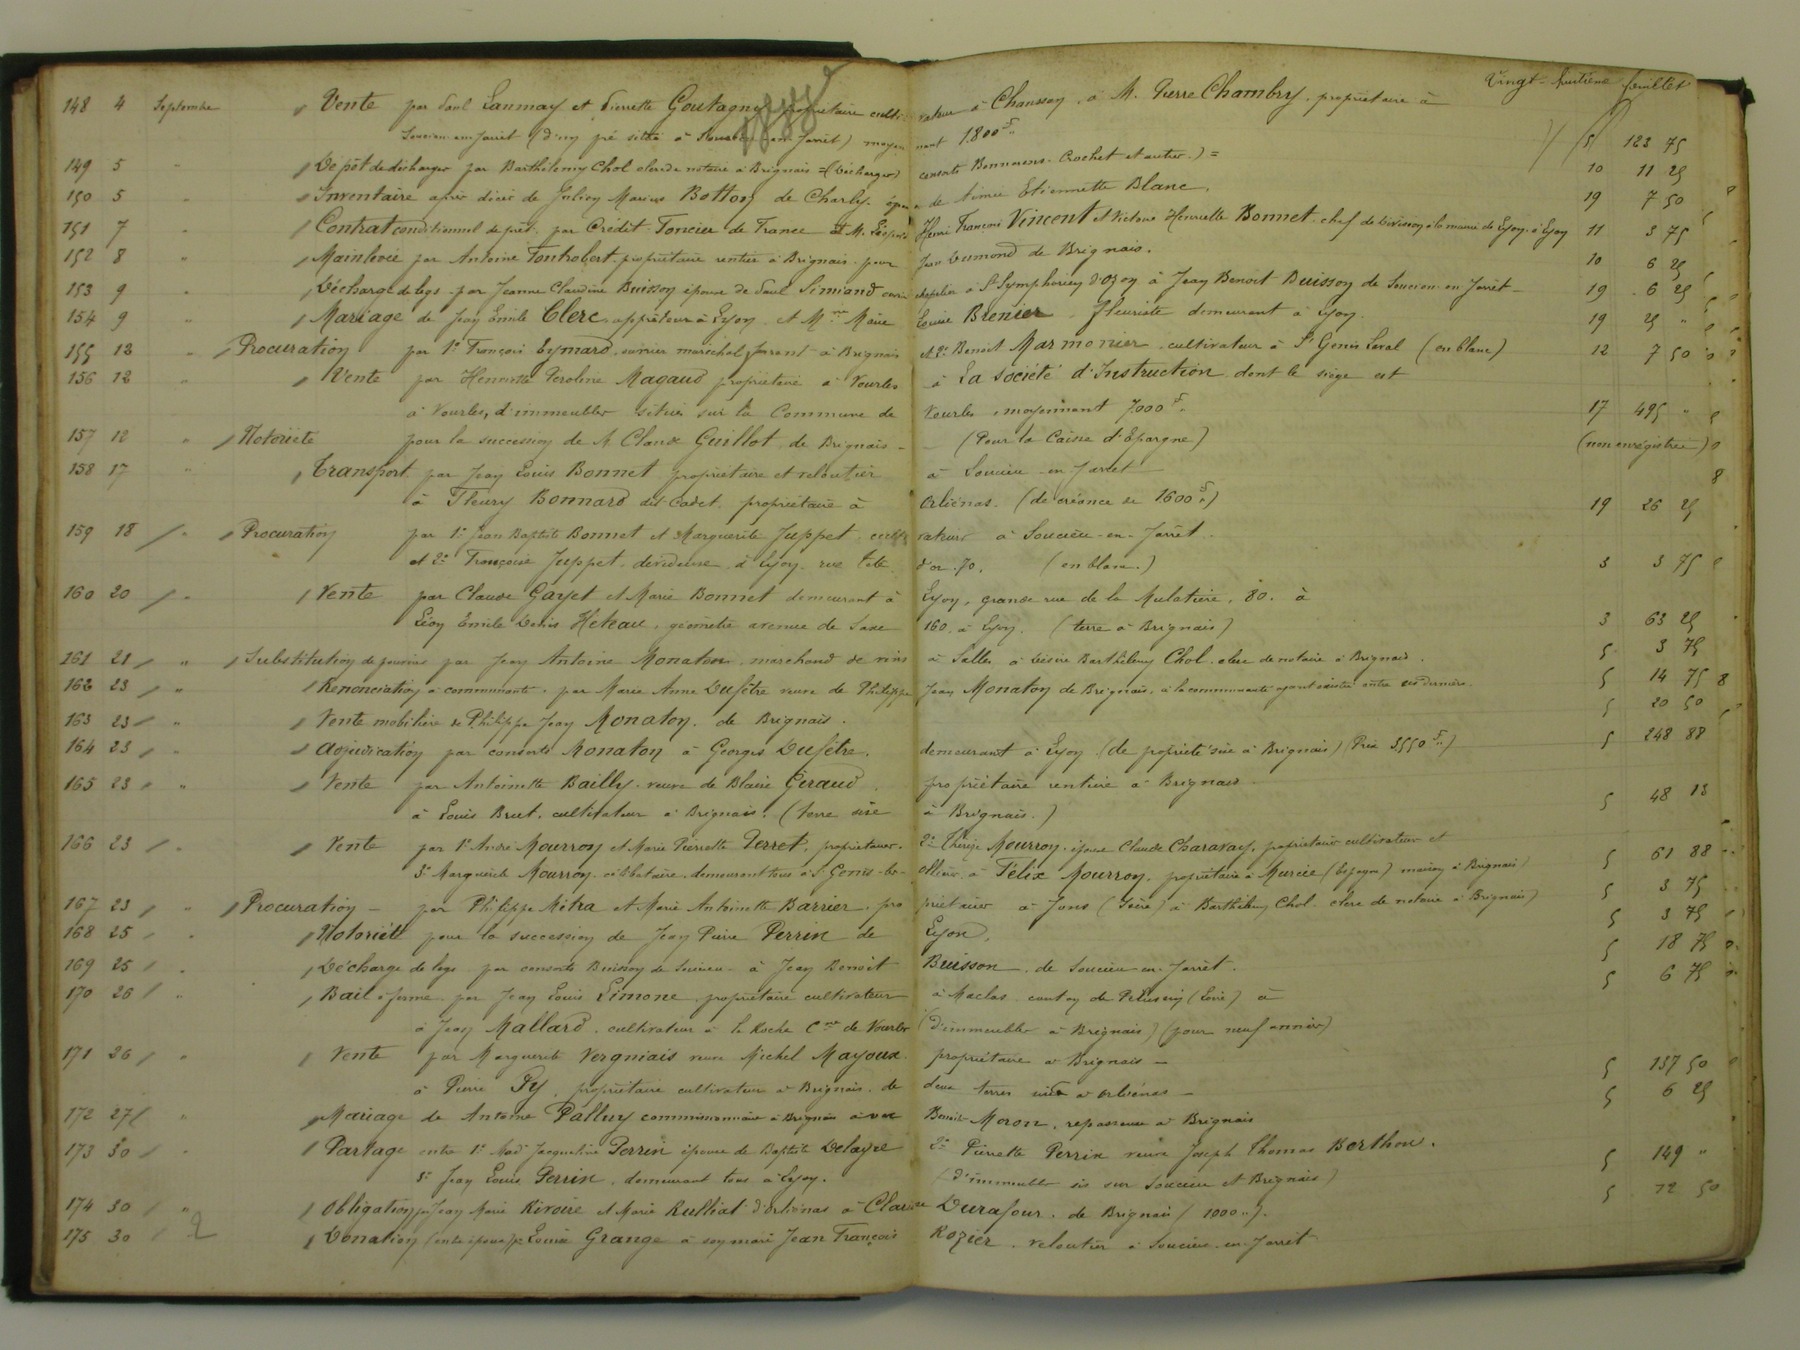 Vingt-huitième feuillet
148 4 Septembre Vente par Paul Launay et Pierrette Goutagny propriétaire culti- vateur à Chaussan, à M. Pierre Chambry, propriétaire à
Soucieu-en-Jarret (d'un pré situé à en-Jarret) moyen nant 1800 f. 5 123 75
149 5 " Dépôt de décharges par Barthélemy Chol clerc de notaire à Brignais = (Décharges) consorts Bonnavens-Crochet et autres.) = 10 11 25
150 5 " Inventaire après décès de Julien Marius Botton de Charly, époux de Aimée Etiennette Blanc. 19 7 50
151 7 " Contrat conditionnel de prêt par Crédit Foncier de France et M. Léopold Henri François Vincent et Victoire Henriette Bonnet, chef de division à la mairie de Lyon, à Lyon 11 3 75
152 8 " Mainlevée par Antoine Fontrobert propriétaire rentier à Brignais pour Jean Dumond de Brignais. 10 6 25
153 9 " Décharge de legs par Jeanne Claudine Buisson épouse de Paul Simiand ouvrier chapelier à St Symphorien d'Ozon à Jean Benoît Buisson de Soucieu-en-Jarret - 19 6 25
154 9 " Mariage de Jean Emile Clerc, apprêteur à Lyon et Mlle Marie Louise Brenier, fleuriste demeurant à Lyon. 19 25 "
155 12 " Procuration par 1° François Eymard, ouvrier maréchal ferrant à Brignais et 2° Benoît Marmonier, cultivateur à St Genis Laval (en blanc) 12 7 50
156 12 " Vente par Henriette Péroline Magaud propriétaire à Vourles à La Société d'Instruction dont le siège est
à Vourles, d'immeubles situés sur la Commune de Vourles, moyennant 7000 f. 17 495 "
157 12 " Notoriété pour la succession de M. Claude Guillot, de Brignais - (Pour la Caisse d'Epargne) (non enregistrée)
158 17 " Transport par Jean Louis Bonnet propriétaire et veloutier à Soucieu-en-Jarret
à Fleury Bonnard dit Cadet, propriétaire à Orliénas. (de créance de 1600 f.) 19 26 25
159 18 " Procuration par 1° Jean Baptiste Bonnet et Marguerite Juppet culti vateurs à Soucieu-en-Jarret.
et 2° Françoise Juppet, dévideuse, à Lyon, rue tête d'or. 70. (en blanc.) 3 3 75
160 20 " Vente par Claude Gayet et Marie Bonnet demeurant à Lyon, grande rue de la Mulatière, 80. à
Léon Emile Denis Heteau, géomètre avenue de Saxe 160, à Lyon. (terre à Brignais) 3 63 25
161 21 " Substitution de pouvoirs par Jean Antoine Monaton, marchand de vins à Salles à Désiré Barthélemy Chol, clerc de notaire à Brignais. 5 3 75
162 23 " Renonciation à communauté par Marie Anne Dufêtre veuve de Philippe Jean Monaton de Brignais, à la communauté ayant existé entre ces derniers. 5 14 75
163 23 " Vente mobilière de Philippe Jean Monaton, de Brignais. 5 20 50
164 23 " Adjudication par consorts Monaton à Georges Dufêtre, demeurant à Lyon (de propriété sise à Brignais) (Prix 3550 f.) 5 248 88
165 23 " Vente par Antoinette Bailly, veuve de Blaise Geraud, propriétaire rentière à Brignais
à Louis Brut, cultivateur à Brignais. (terre sise à Brignais.) 5 48 13
166 23 " Vente par 1° André Mourron et Marie Pierrette Perret, propriétaires. 2° Thérèse Mourron, épouse Claude Charavay, propriétaire cultivateur et
3° Marguerite Mourron, célibataire, demeurant tous à St Genis-les- ollières à Félix Mourron, propriétaire à Murcie (Espagne) maison à Brignais) 5 61 88
167 23 " Procuration - par Philippe Mitra et Marie Antoinette Barrier, pro priétaires à Jons (Isère) à Barthélemy Chol, clerc de notaire à Brignais) 5 3 75
168 25 " Notoriété pour la succession de Jean Pierre Perrin de Lyon. 5 3 75
169 25 " Décharge de legs par consorts Buisson de Soucieu - à Jean Benoît Buisson, de Soucieu-en-Jarret. 5 18 75
170 26 " Bail à ferme par Jean Louis Limone, propriétaire cultivateur à Maclas canton de Pélussin (Loire) à 5 6 75
à Jean Mallard, cultivateur à la Roche Cne de Vourles (d'immeubles à Brignais) (pour neuf années)
171 26 " Vente par Marguerite Vergniais veuve Michel Mayoux propriétaire à Brignais -
à Pierre Py, propriétaire cultivateur à Brignais, de deux terres sises à Orliénas - 5 137 50
172 27 " Mariage de Antoine Palluy commissionnaire à Brignais avec Benoîte Moron, repasseuse à Brignais 5 6 25
173 30 " Partage entre 1° Mad. Jacqueline Perrin épouse de Baptiste Delaye 2° Pierrette Perrin veuve Joseph Thomas Berthou.
3° Jean Louis Perrin, demeurant tous à Lyon. (d'immeubles sis sur Soucieu et Brignais) 5 149 "
174 30 " Obligation par Jean Marie Rivoire et Marie Rulliat d'Orliénas à Claude Durafour, de Brignais (1000 ".). 5 12 50
175 30 " Donation (entre époux) par Louise Grange à son mari Jean François Rozier, veloutier à Soucieu-en-Jarret